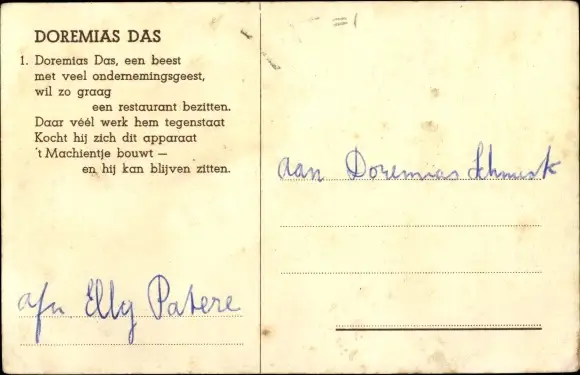 DOREMIAS DAS
1. Doremias Das, een beest
met veel ondernemingsgeest,
wil zo graag
een restaurant bezitten.
Daar véél werk hem tegenstaat
Kocht hij zich dit apparaat
't Machientje bouwt —
en hij kan blijven zitten.
afn. Elly Patere
aan Doremias